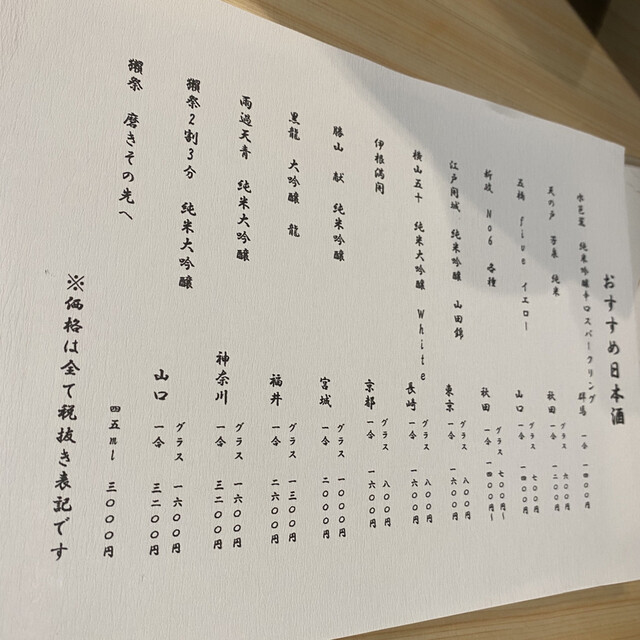 おすすめ日本酒
水芭蕉 純米吟醸辛口スパークリング 群馬 一合 一四〇〇円
天の戸 芳泉 純米 秋田 グラス 六〇〇円
一合 一二〇〇円
五橋 five イエロー 山口 グラス 七〇〇円
一合 一四〇〇円
新政 No6 各種 秋田 グラス 七〇〇円~
一合 一四〇〇円~
江戸開城 純米吟醸 山田錦 東京 グラス 八〇〇円
一合 一六〇〇円
横山五十 純米大吟醸 White 長崎 グラス 八〇〇円
一合 一六〇〇円
伊根満開 京都 グラス 八〇〇円
一合 一六〇〇円
勝山 献 純米吟醸 宮城 グラス 一〇〇〇円
一合 二〇〇〇円
黒龍 大吟醸 龍 福井 グラス 一三〇〇円
一合 二六〇〇円
雨過天青 純米大吟醸 神奈川 グラス 一六〇〇円
一合 三二〇〇円
獺祭2割3分 純米大吟醸 山口 グラス 一六〇〇円
一合 三二〇〇円
獺祭 磨きその先へ 四五ml 三〇〇〇円
※価格は全て税抜き表記です